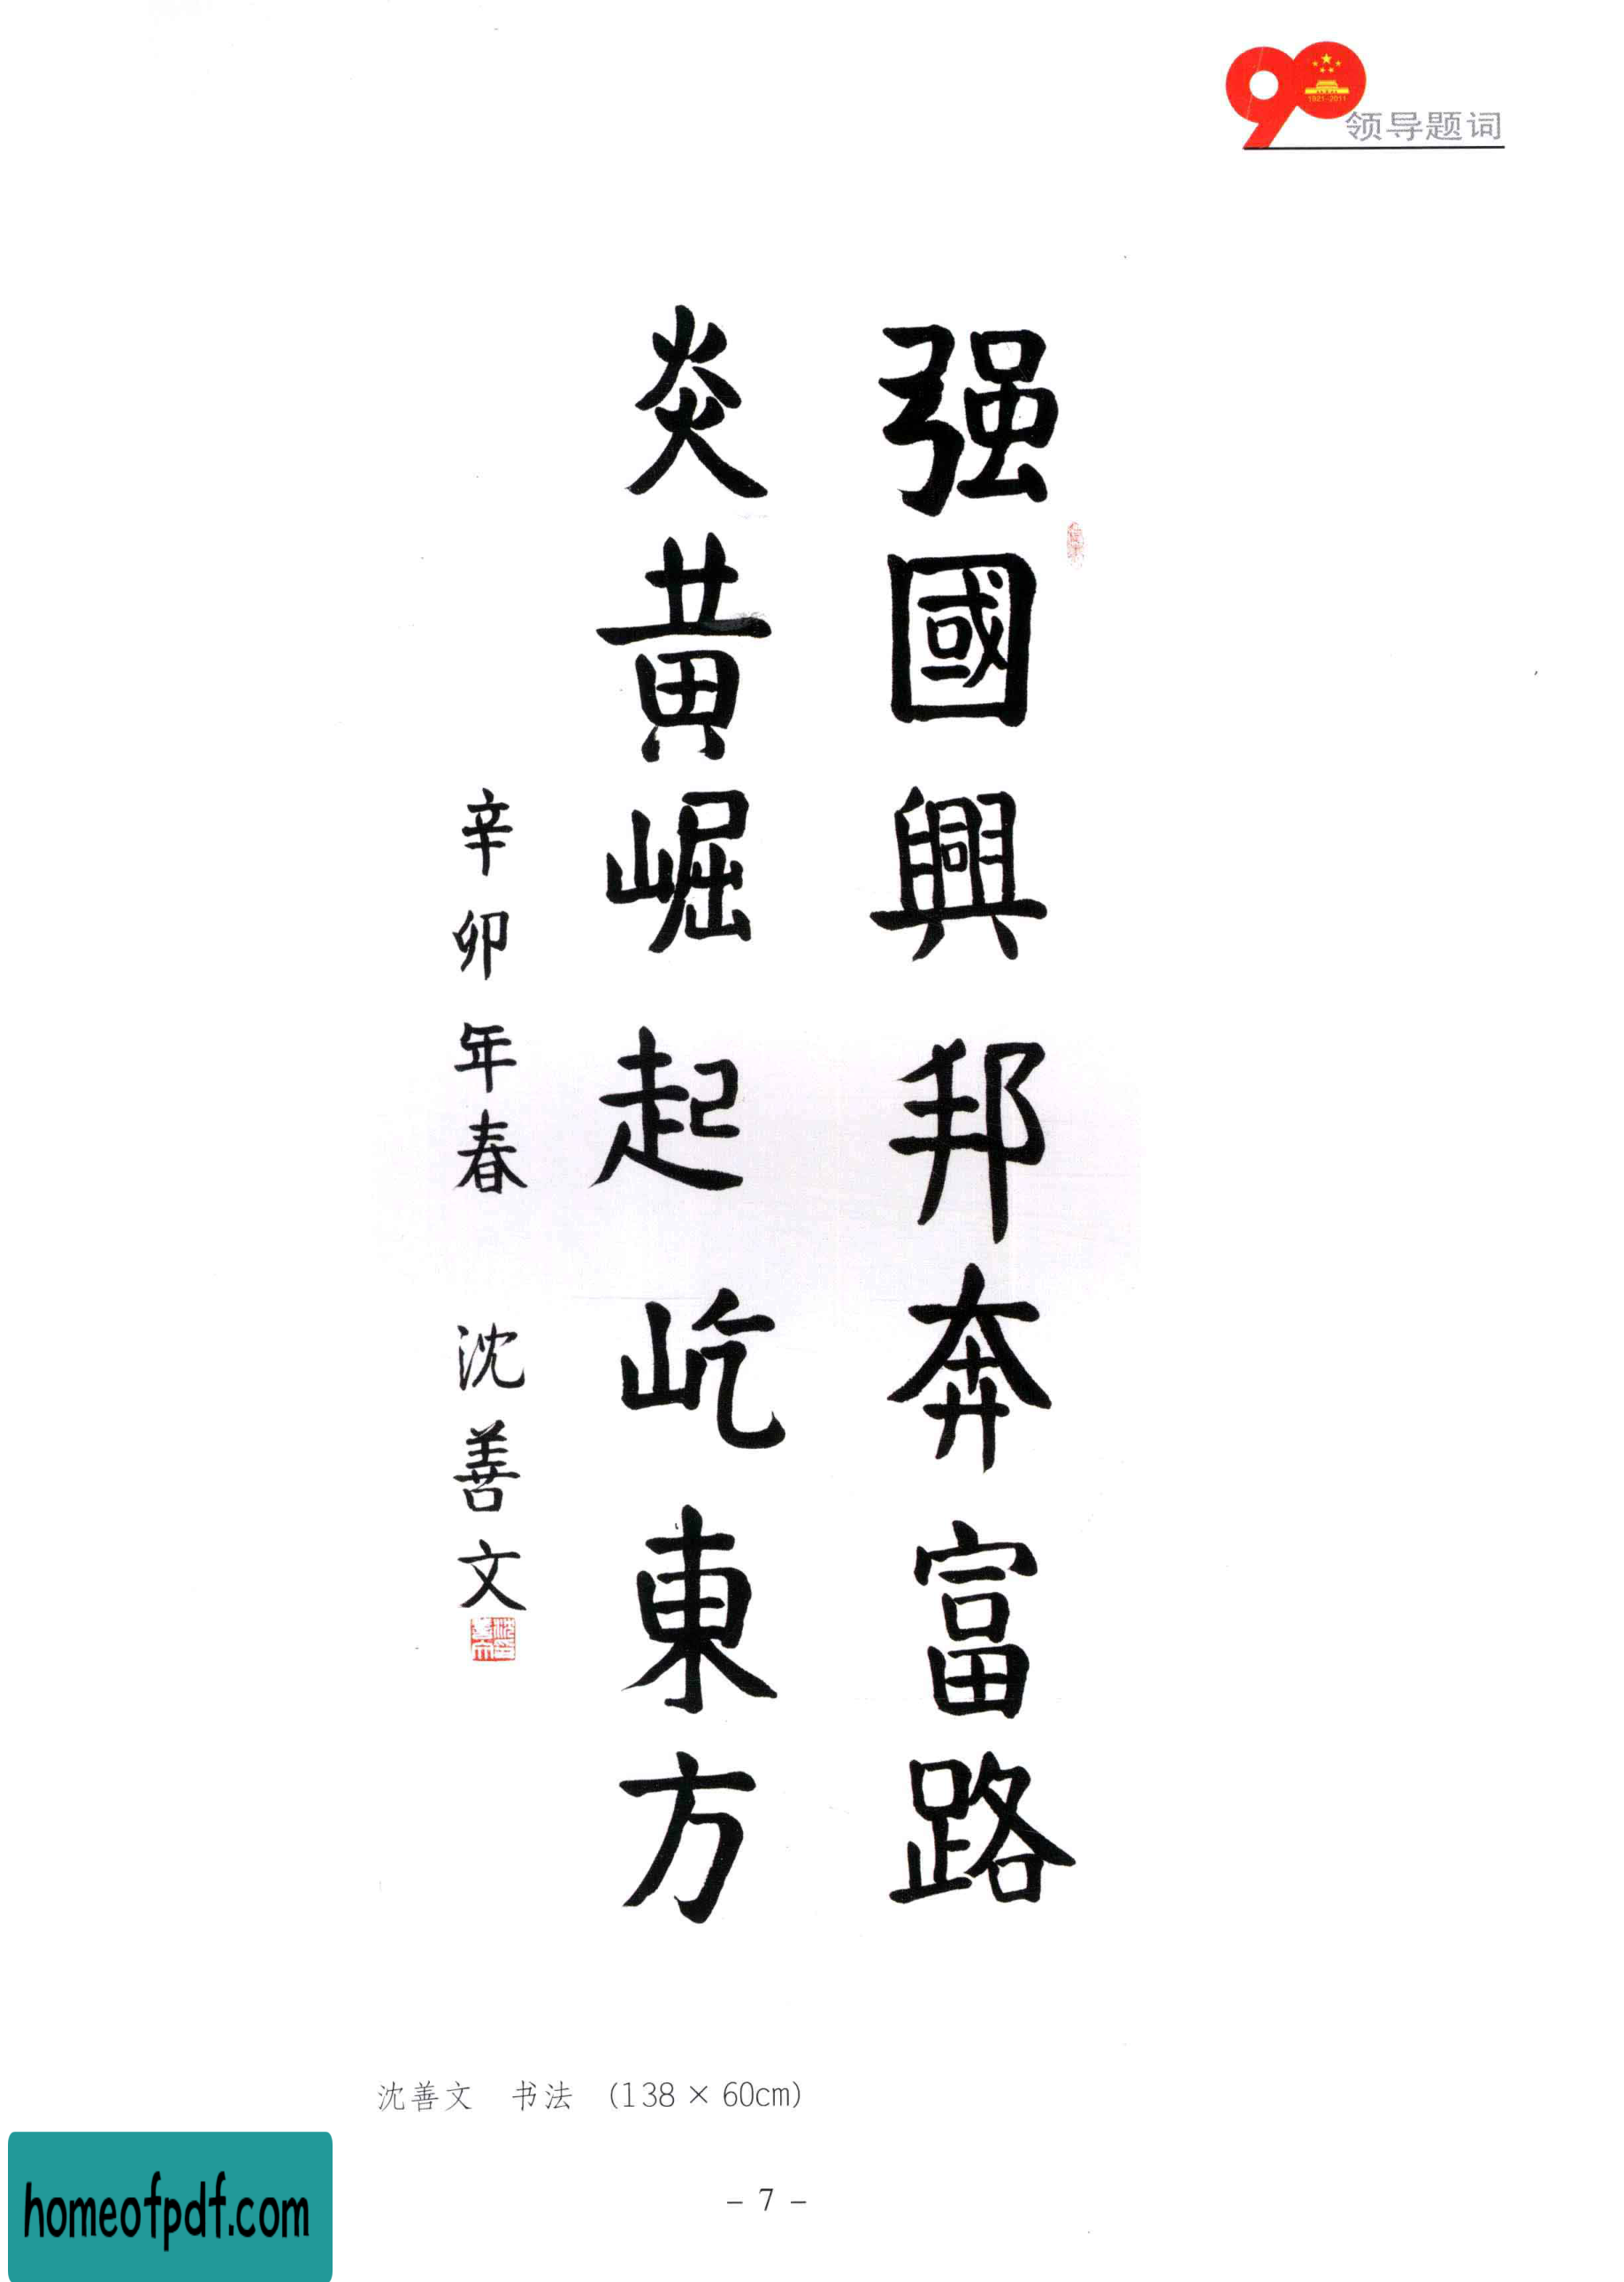 1921-2011
领导题词
强國興邦奔富路
炎黄崛起屹東方
辛卯年春 沈善文
沈善文 书法 (138 × 60cm)
- 7 -
homeofpdf.com